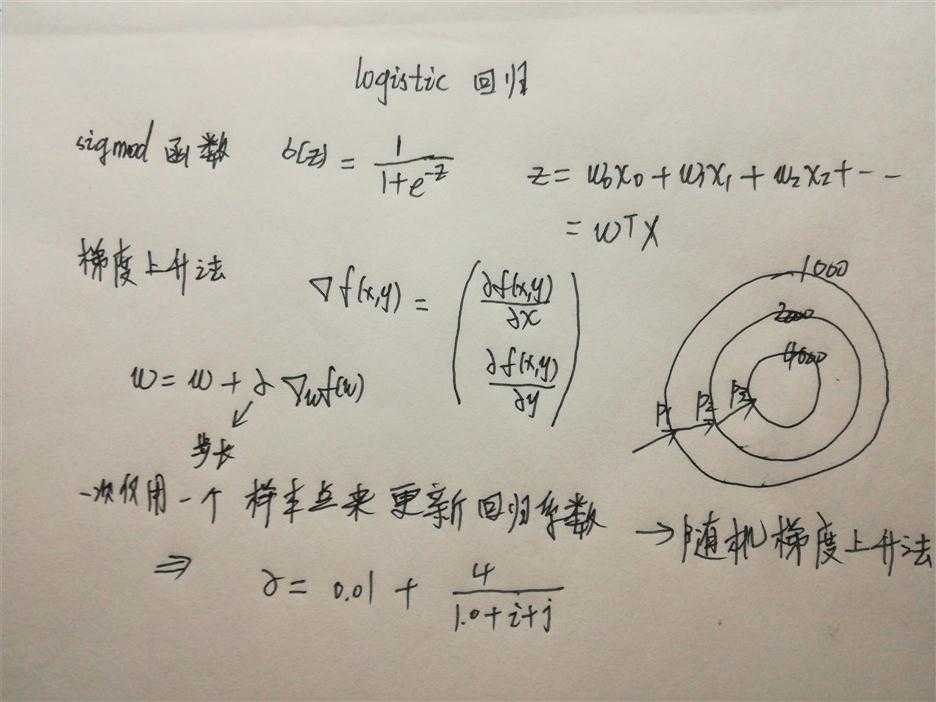 logistic 回归
sigmod 函数 σ(z) = 1/(1+e^-z) z = w0x0 + w1x1 + w2x2 + --
= wTx
梯度上升法
∇f(x,y) = (∂f(x,y)/∂x ∂f(x,y)/∂y)
1000
2000
4000
P1 P2 P3
w = w + α ∇wf(w)
步长
一次仅用一个样本点来更新回归系数 → 随机梯度上升法
⇒ α = 0.01 + 4/(1.0+i+j)